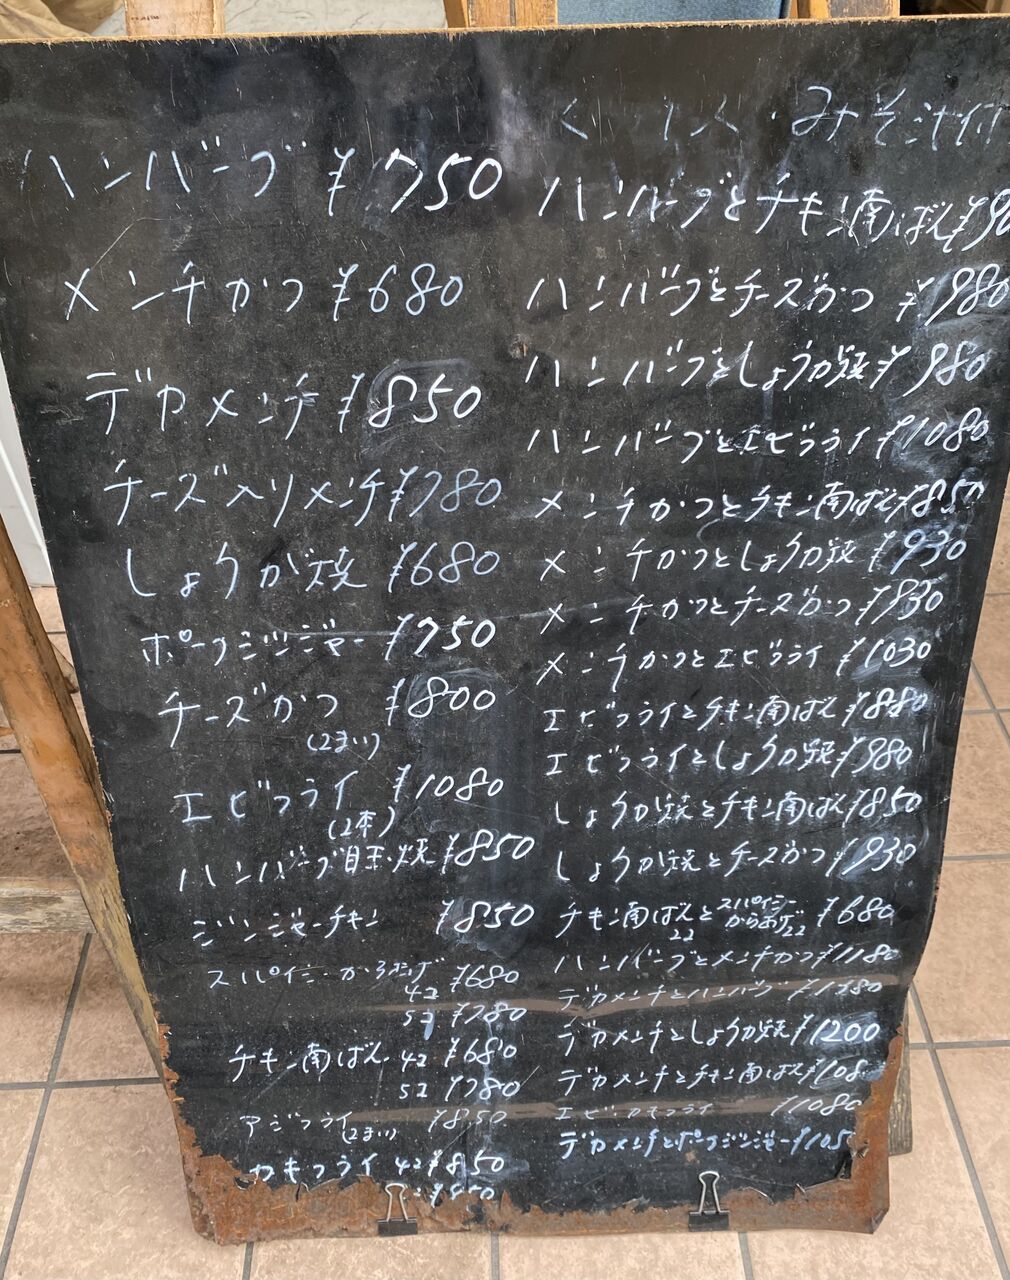 みそ汁付
ハンバーグ ¥750
メンチかつ ¥680
デカメンチ ¥850
チーズ入リメンチ ¥780
しょうが焼 ¥680
ポークジンジャー ¥750
チーズかつ ¥800
(2まい)
エビフライ ¥1080
(2本)
ハンバーグ目玉焼 ¥850
ジンジャーチキン ¥850
スパイシーからあげ
4コ ¥680
5コ ¥780
チキン南ばん 4コ ¥680
5コ ¥780
アジフライ ¥850
(2まい)
カキフライ 4コ ¥850
ハンバーグとチキン南ばん
ハンバーグとチーズかつ ¥980
ハンバーグとしょうが焼 ¥980
ハンバーグとエビフライ ¥1080
メンチかつとチキン南ばん ¥850
メンチかつとしょうが焼 ¥930
メンチかつとチーズかつ ¥930
メンチかつとエビフライ ¥1030
エビフライとチキン南ばん ¥880
エビフライとしょうが焼 ¥980
しょうが焼とチキン南ばん ¥850
しょうが焼とチーズかつ ¥930
チキン南ばん2コとスパイシーからあげ2コ ¥680
ハンバーグとメンチかつ ¥1180
デカメンチとハンバーグ
デカメンチとしょうが焼 ¥1200
デカメンチとチキン南ばん
エビカキフライ ¥1080
デカメンチとポークジンジャー